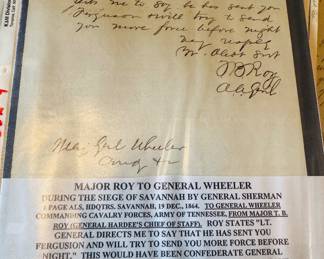 me to say he has sent you
Ferguson & will try to send
you more force before night
Very respy
Yr Obt Svt
T B Roy
A A Genl
Maj Genl Wheeler
MAJOR ROY TO GENERAL WHEELER
DURING THE SIEGE OF SAVANNAH BY GENERAL SHERMAN
PAGE ALS, HDQTRS. SAVANNAH, 19 DEC., 1864. TO GENERAL WHEELER
COMMANDING CAVALRY FORCES, ARMY OF TENNESSEE, FROM MAJOR T. B.
ROY (GENERAL HARDEE'S CHIEF OF STAFF). ROY STATES "LT.
GENERAL DIRECTS ME TO SAY THAT HE HAS SENT YOU
FERGUSION AND WILL TRY TO SEND YOU MORE FORCE BEFORE
NIGHT." THIS WOULD HAVE BEEN CONFEDERATE GENERAL